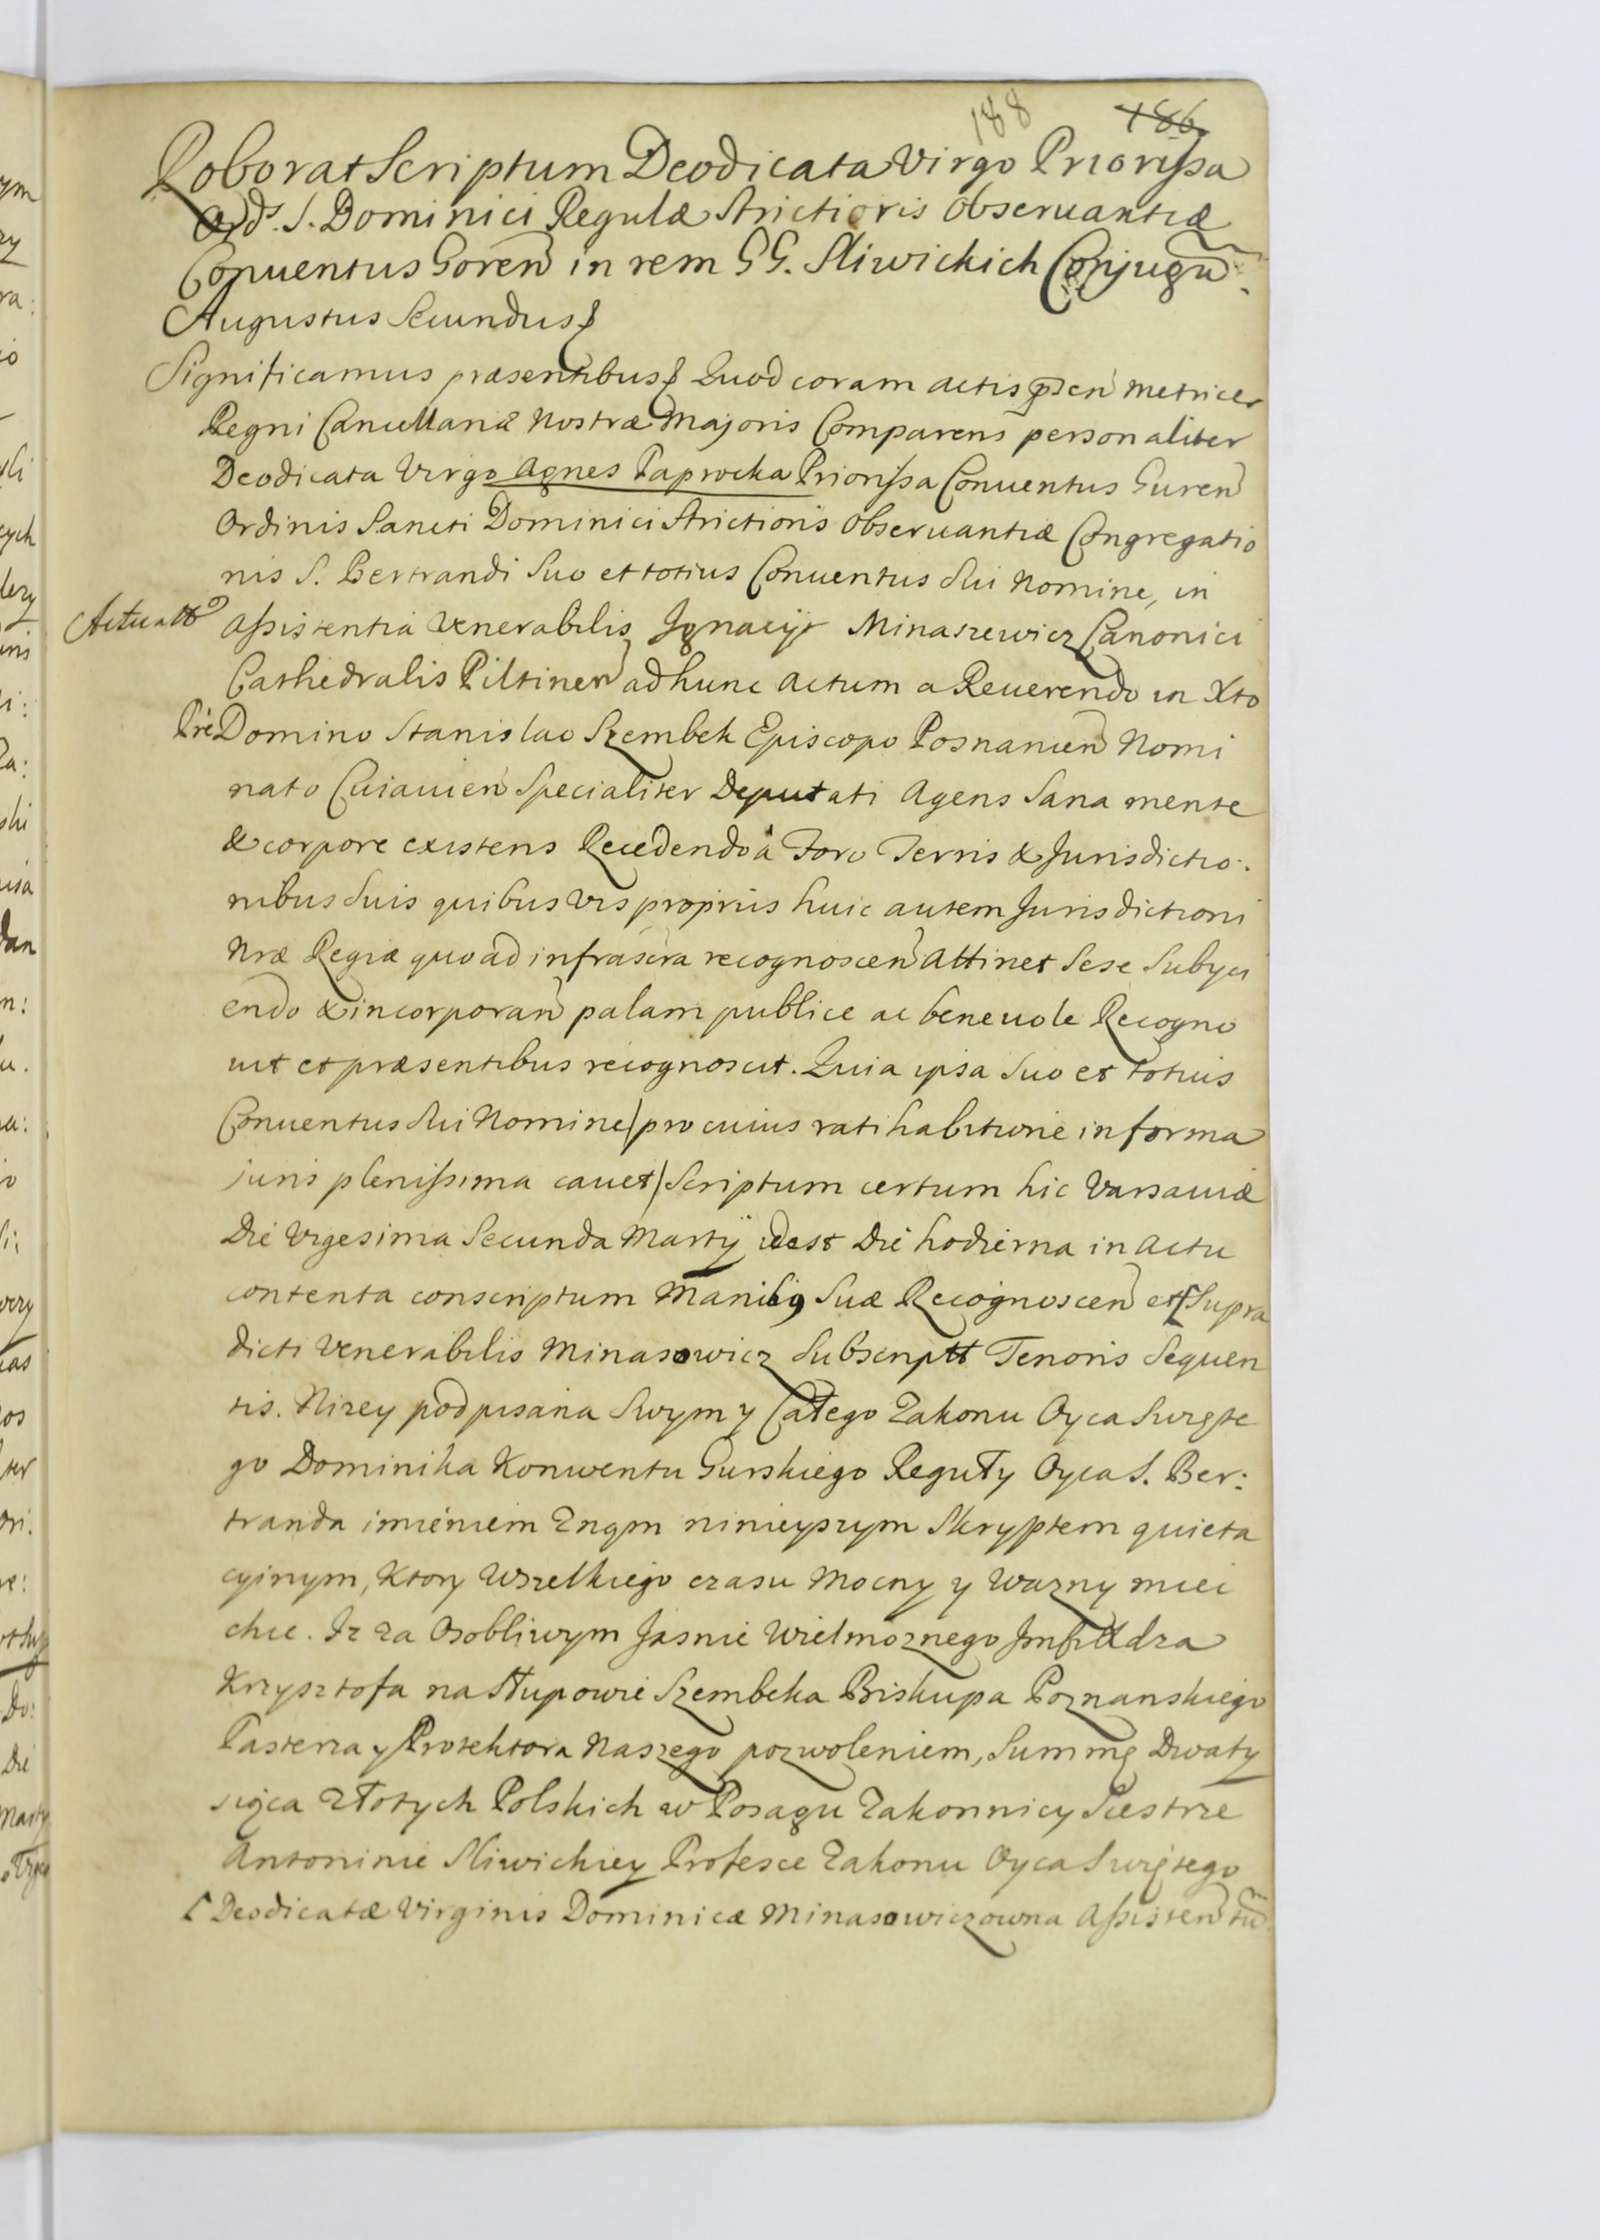 188 186
Roborat Scriptum Deodicata Virgo Priorissa
Ord. S. Dominici Regulæ Strictioris Observantiæ
Conuentus Goren in rem GG. Sliwickich Conjugu
Augustus Secundus
Significamus præsentibus Quod coram actis pñsen Metrices
Regni Cancellariæ Nostræ Majoris Comparens personaliter
Deodicata Virgo Agnes Paprocka Priorissa Conuentus Guren
Ordinis Sancti Dominici Strictioris Obseruantiæ Congregatio
nis S. Bertrandi Suo et totius Conuentus Sui Nomine, in
Assistentia Venerabilis Ignacij Minaszewicz Canonici
Cathedralis Piltinen ad hunc actum a Reuerendo in Xto
Pré Domino Stanislao Szembek Episcopo Posnanien Nomi
nato Cuiauien Specialiter Deputati Agens Sana mente
& corpore existens Recedendo à Foro Terris & Jurisdictio.
nibus Suis quibus Vis proprijs huic autem Jurisdictioni
Nræ Regiæ quo ad infrascra recognoscen Attinet Sese Subyci
endo & incorporan palam publice ac beneuole Recogno
uit et præsentibus recognoscit. Quia ipsa Suo et totius
Conuentus Sui Nomine/pro cuius ratihabitione in forma
juris plenissima cauet/Scriptum certum hic Varsauiæ
Die Vigesima Secunda Martij idest Die hodierna in Actu
contenta conscriptum Manibg Suæ Recognoscen et Supra
dicti Venerabilis Minasowicz Subscriptt Tenoris Sequen
tis. Nizey podpisana Swym y Całego Zakonu Oyca Swięte
go Dominika Konwentu Gurskiego Reguły Oyca S. Ber:
tranda imieniem Zngm ninieyszym Skryptem quieta
cyinym, Ktory Wszelkiego czasu Mocny y Wazny miec
chce. Iz za Osobliwym Jasnie Wielmoznego
Krzysztofa na Słupowie Szembeka Biskupa Poznanskiego
Pasterza y Protektora Naszego pozwoleniem, Summę Dwaty
sięca Złotych Polskich w Posagu Zakonnicy Siestrze
Antoninie Sliwickiey Profesce Zakonu Oyca Swiętego
Deodicatæ Virginis Dominicæ Minasowiczowna Assisten